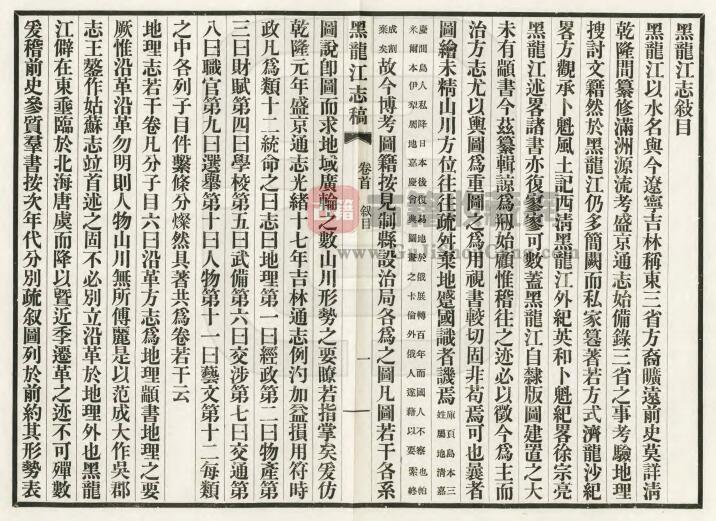 黑龍江志敍目
黑龍江以水名與今遼寧吉林稱東三省方裔曠遠前史莫詳清
乾隆間纂修滿洲源流考盛京通志始備錄三省之事考驗地理
搜討文籍然於黑龍江仍多簡闕而私家簒著若方式濟龍沙紀
畧方觀承卜魁風土記西清黑龍江外紀英和卜魁紀畧徐宗亮
黑龍江述畧諸書亦復寥寥可數蓋黑龍江自隸版圖建置之大
未有顓書今茲纂輯諒爲剏始顧惟稽往之迹必以徵今爲主而
治方志尤以輿圖爲重圖之爲用視書較切固非苟焉可也曩者
圖繪未精山川方位往往疏舛棄地蹙國識者譏焉
庫頁島本三
姓屬地清嘉
慶間島人私降日本後復易地於俄展轉百年而國人不察也帕
米爾本伊犁屬地嘉慶會典圖畫之卡倫外俄人遂藉以要索終
成割
棄矣
故今博考圖籍按見制縣設治局各爲之圖凡圖若干各系
黑龍江志稿
卷首 敍目
一
圖說卽圖而求地域廣輪之數山川形勢之要瞭若指掌矣爰仿
乾隆元年盛京通志光緒十七年吉林通志例汋加益損用符時
政凡爲類十二統命之曰志曰地理第一曰經政第二曰物產第
三曰財賦第四曰學校第五曰武備第六曰交涉第七曰交通第
八曰職官第九曰選舉第十曰人物第十一曰藝文第十二每類
之中各列子目件繫條分燦然具著共爲卷若干云
地理志若干卷凡分子目六曰沿革方志爲地理顓書地理之要
厥惟沿革沿革勿明則人物山川無所傅麗是以范成大作吳郡
志王鏊作姑蘇志竝首述之固不必別立沿革於地理外也黑龍
江僻在東垂臨於北海唐虞而降以曁近季遷革之迹不可殫數
爰稽前史參質羣書按次年代分別疏敍圖列於前約其形勢表
古籍
www.GuJiShu.com